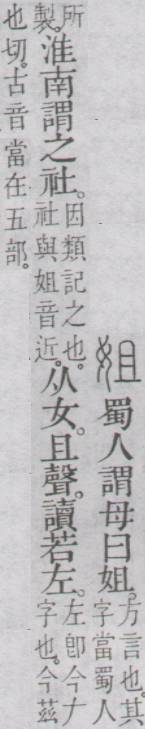 姐 蜀人謂母曰姐。方言也。其字當蜀人
所製。淮南謂之社。因類記之也。社與姐音近。从女。且聲。讀若左。左卽今𠂇字也。今茲
也切。古音當在五部。